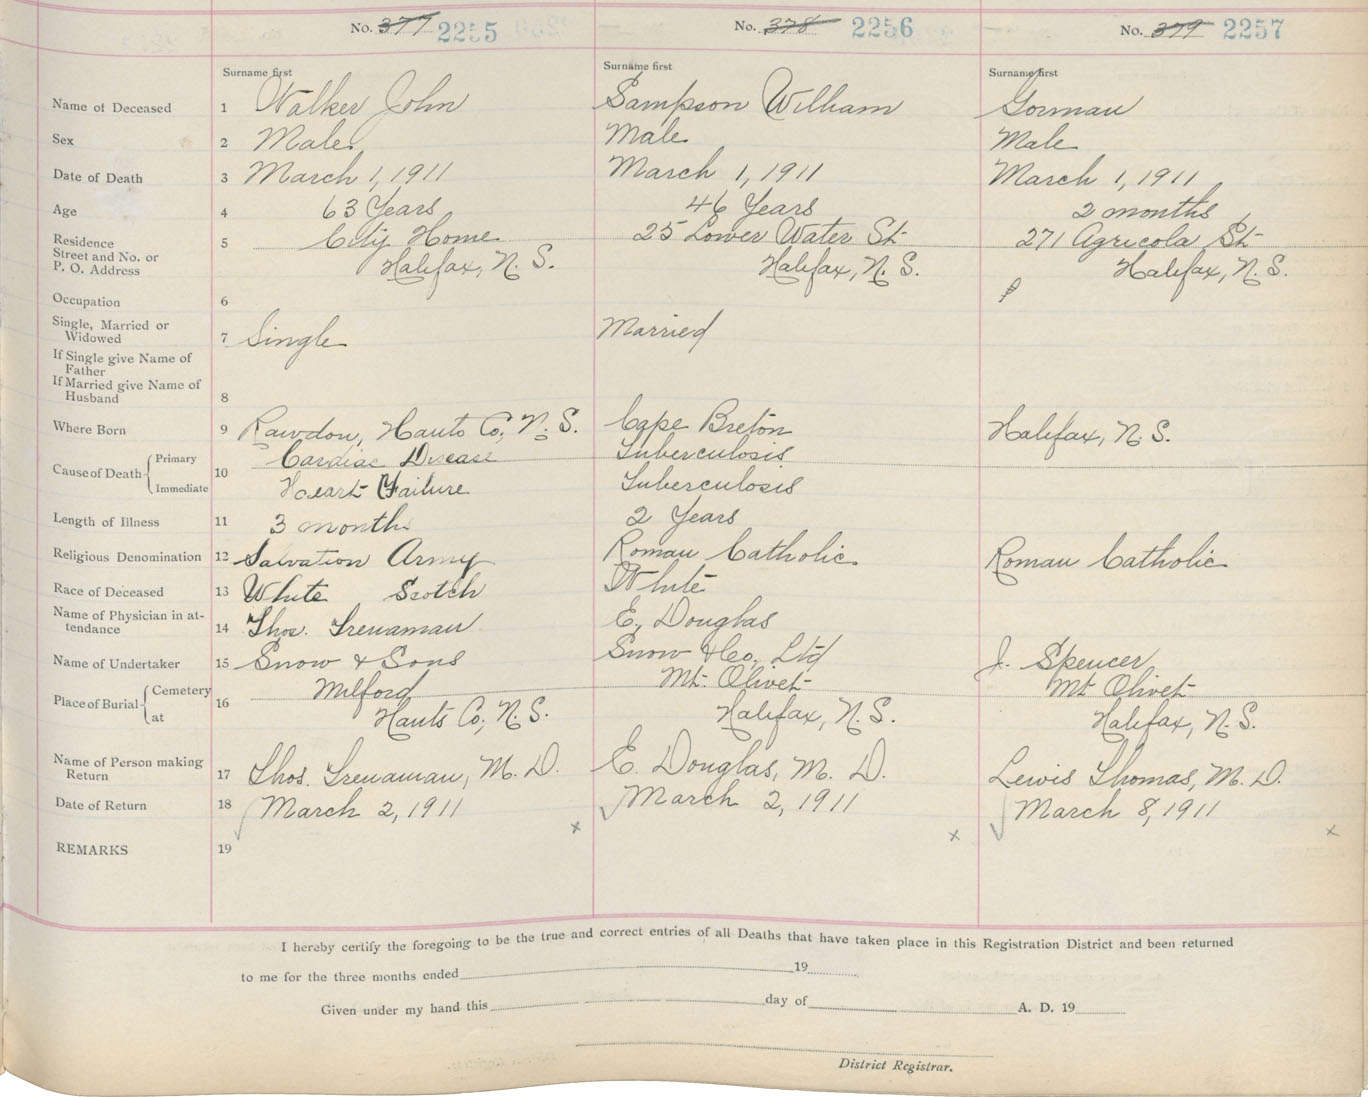 No. 377 2255 No. 378 2256 No. 379 2257
Surname first Surname first Surname first
Name of Deceased 1 Walker John Sampson William Gorman
Sex 2 Male Male Male
Date of Death 3 March 1, 1911 March 1, 1911 March 1, 1911
Age 4 63 Years 46 Years 2 months
Residence 5 City Home 25 Lower Water St 271 Agricola St
Street and No. or
P. O. Address Halifax, N. S. Halifax, N. S. Halifax, N. S.
Occupation 6
Single, Married or
Widowed 7 Single Married
If Single give Name of
Father
If Married give Name of
Husband 8
Where Born 9 Rawdon, Hants Co, N. S. Cape Breton Halifax, N. S.
Cause of Death Primary Cardiac Disease Tuberculosis
10
Immediate Heart Failure Tuberculosis
Length of Illness 11 3 months 2 Years
Religious Denomination 12 Salvation Army Roman Catholic Roman Catholic
Race of Deceased 13 White Scotch White
Name of Physician in at-
tendance 14 Thos. Trenaman E. Douglas
Name of Undertaker 15 Snow & Sons Snow & Co, Ltd J. Spencer
Place of Burial Cemetery 16 Milford Mt. Olivet Mt Olivet
at Hants Co, N. S. Halifax, N. S. Halifax, N. S.
Name of Person making
Return 17 Thos. Trenaman, M. D. E. Douglas, M. D. Lewis Thomas, M. D.
Date of Return 18 March 2, 1911 March 2, 1911 March 8, 1911
x x x
REMARKS 19
I hereby certify the foregoing to be the true and correct entries of all Deaths that have taken place in this Registration District and been returned
to me for the three months ended 19
Given under my hand this day of A. D. 19
District Registrar.